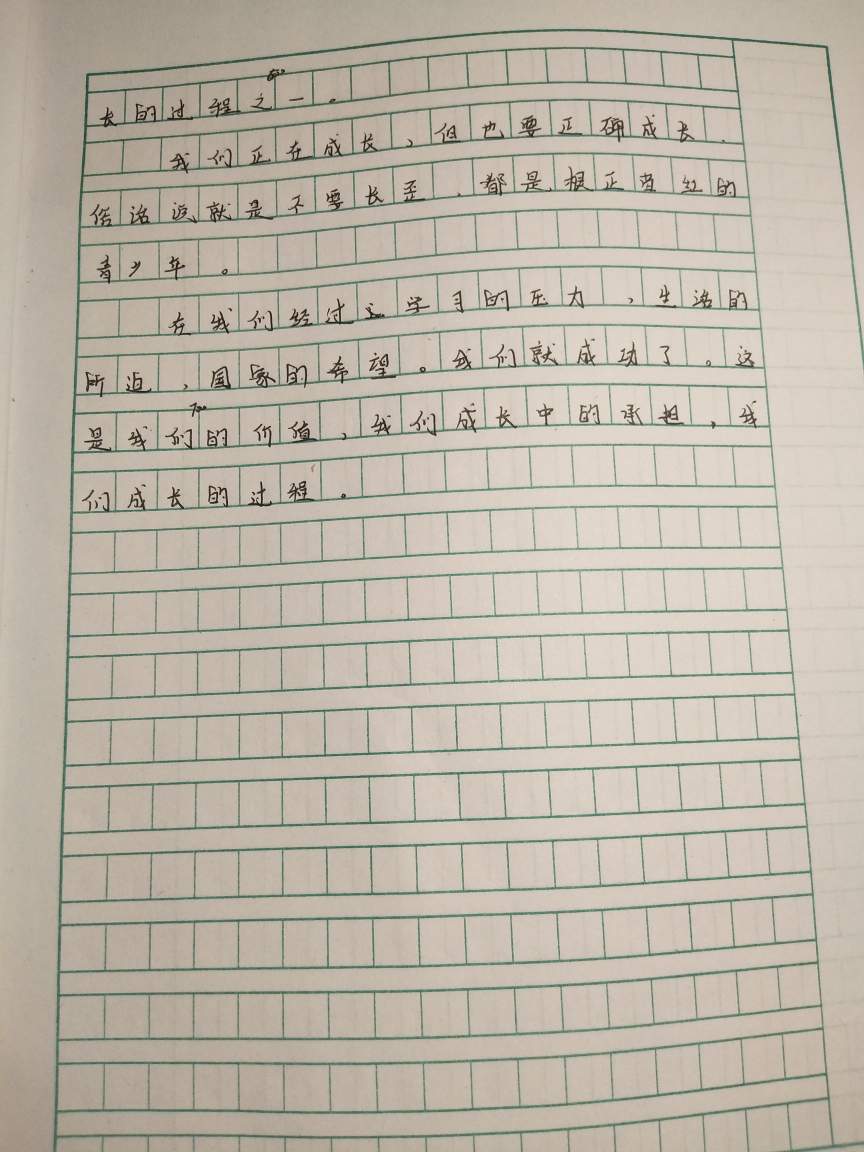 600
长的过程之一。
我们正在成长，但也要正确成长，
俗话说就是不要长歪，都是根正苗红的
青少年。
在我们经过了学习的压力，生活的
所迫，国家的希望。我们就成功了。这
700
是我们的价值，我们成长中的承担，我
们成长的过程。